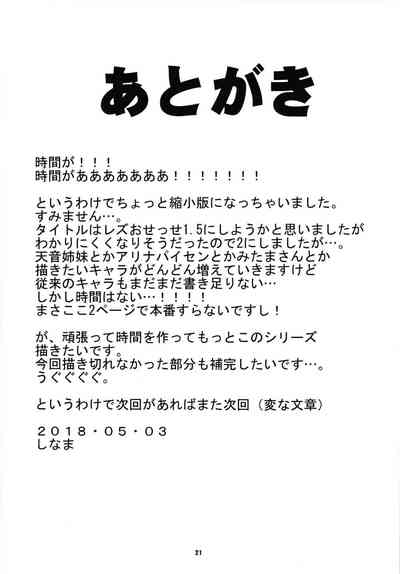 あとがき
時間が！！！
時間がああああああ！！！！！！！
というわけでちょっと縮小版になっちゃいました。
すみません…。
タイトルはレズおせっせ1.5にしようかと思いましたが
わかりにくくなりそうだったので2にしましたが…。
天音姉妹とかアリナパイセンとかみたまさんとか
描きたいキャラがどんどん増えていきますけど
従来のキャラもまだまだ書き足りない…
しかし時間はない…！！！！
まさここ2ページで本番すらないですし！
が、頑張って時間を作ってもっとこのシリーズ
描きたいです。
今回描き切れなかった部分も補完したいです…。
うぐぐぐぐ。
というわけで次回があればまた次回（変な文章）
２０１８・０５・０３
しなま
21